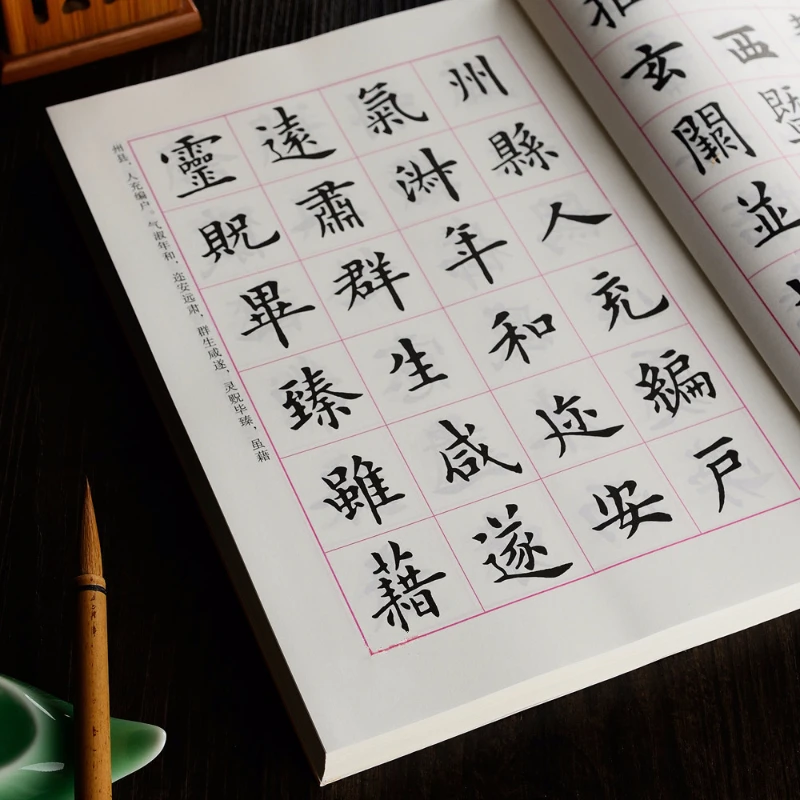 西
玄闕並
州縣人充編戶
氣淑年和迩安
遠肅群生咸遂
靈貺畢臻雖藉
州县，人充编户。气淑年和，迩安远肃，群生咸遂，灵贶毕臻，虽藉